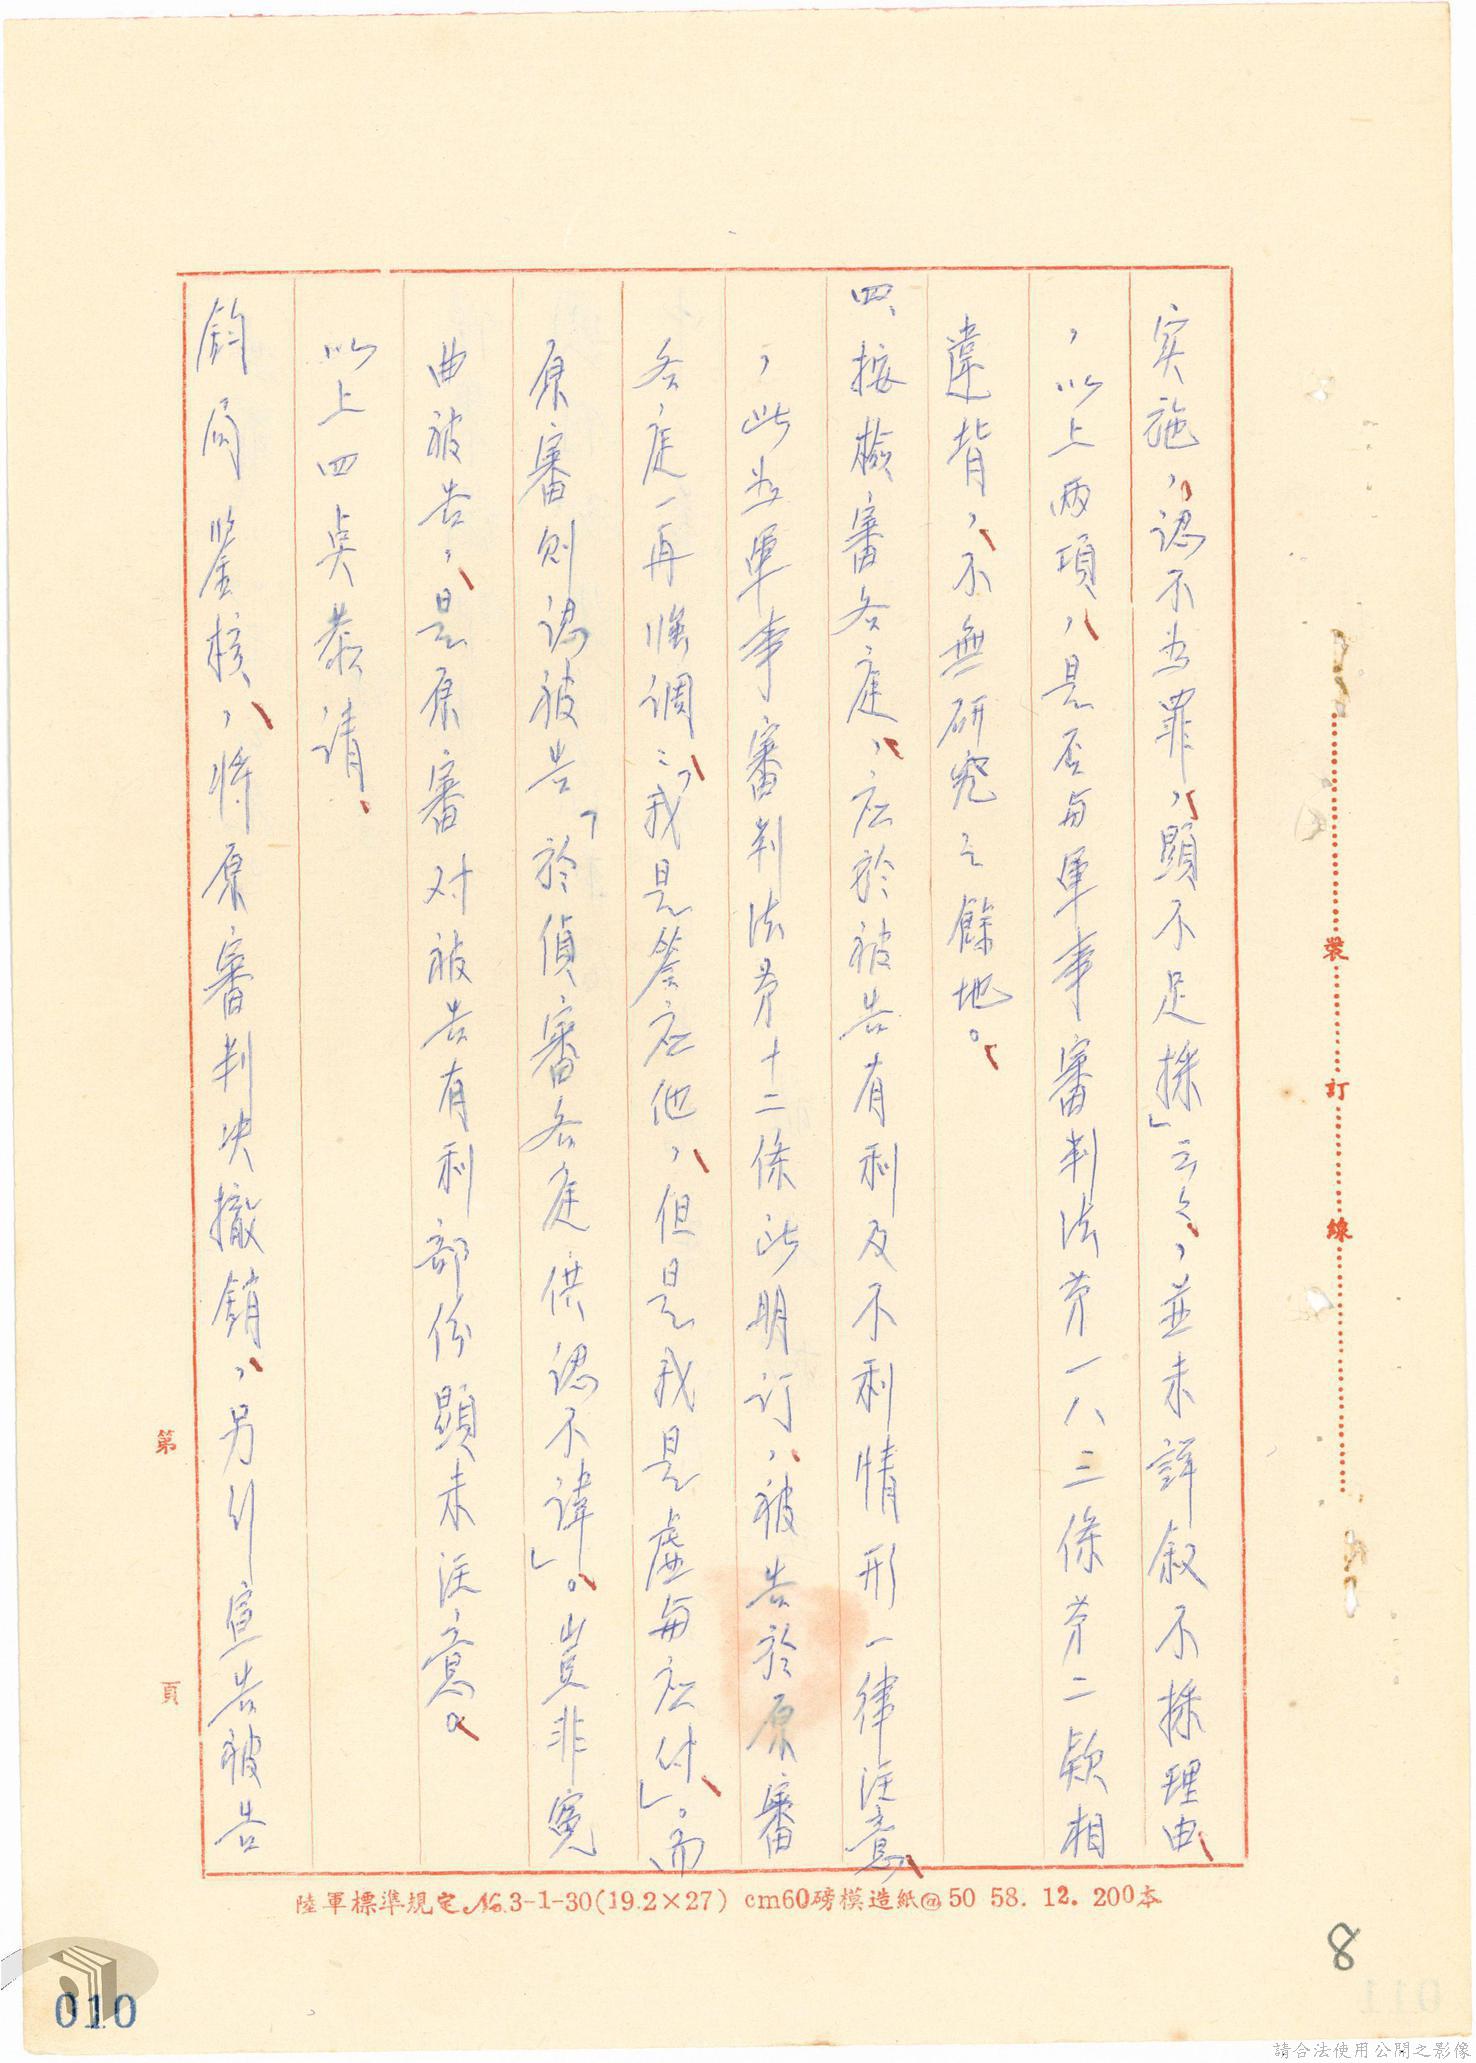 实施，認不为罪，顯不足採」云云，並未詳叙不採理由
，以上两項，是否与軍事審判法第一八三條第二欵相
違背，不無研究之餘地。
四、按檢審各庭，应於被告有利及不利情形一律注意
，此为軍事審判法第十二條所明订，被告於原審
各庭一再強調：「我是答应他，但是我是虛与应付」。而
原審則認被告「於偵審各庭供認不諱」。豈非寃
曲被告，是原審对被告有利部份顯未注意。
以上四点恭请
鈞局鉴核，将原審判决撤銷，另行宣告被告
裝訂線
第 頁
陸軍標準規定№.3-1-30(19.2×27) cm60磅模造紙@50 58. 12. 200本
8
010
011
請合法使用公開之影像